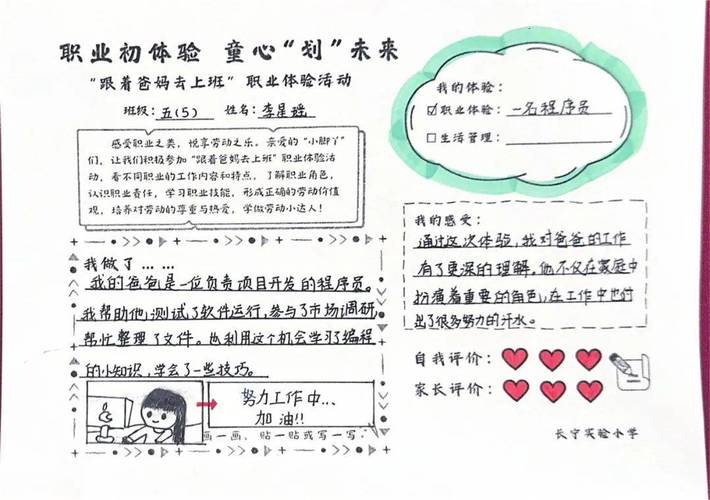 职业初体验 童心“划”未来
“跟着爸妈去上班”职业体验活动
班级：五(5) 姓名：李星瑶
感受职业之美，悦享劳动之乐。亲爱的“小脚丫”
们，让我们积极参加“跟着爸妈去上班”职业体验活
动，看不同职业的工作内容和特点，了解职业角色，
认识职业责任，学习职业技能，形成正确的劳动价值
观，培养对劳动的尊重与热爱，学做劳动小达人！
我的体验：
☑职业体验：一名程序员
□生活管理：
我做了……
我的爸爸是一位负责项目开发的程序员。
我帮助他测试了软件运行，参与了市场调研，
帮忙整理了文件。也利用这个机会学习了编程
的小知识，学会了一些技巧。
努力工作中...
加油!!
画一画、贴一贴或写一写
我的感受：
通过这次体验，我对爸爸的工作
有了更深的理解。他不仅在家庭中
扮演着重要的角色，在工作中也付
出了很多努力的汗水。
自我评价：
家长评价：
长宁实验小学